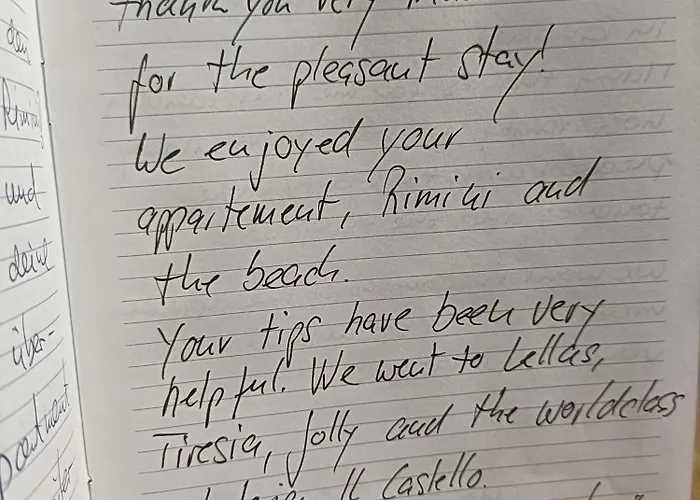 den
Rimini
und
deine
über-
Thank you very
for the pleasant stay!
We enjoyed your
appartement, Rimini and
the beach.
Your tips have been very
helpful. We went to Lellas,
Tiresia, Jolly and the worldclass
Il Castello.